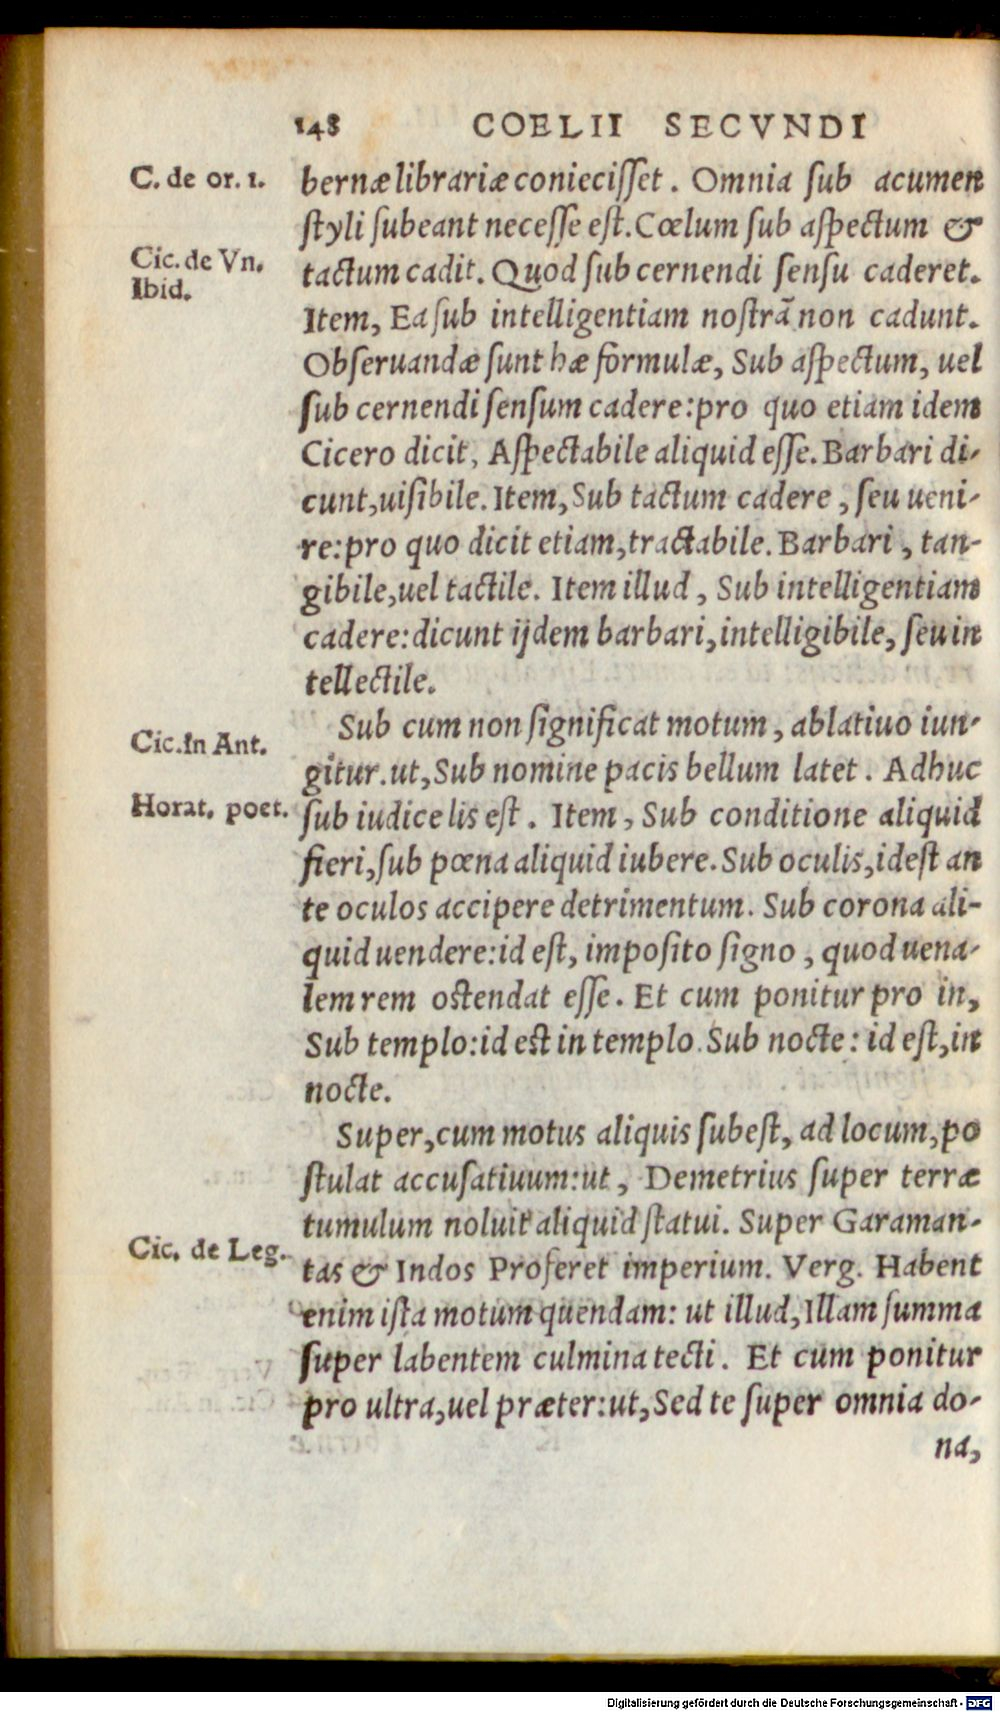 148 COELII SECVNDI
C. de or. 1.
bernæ librariæ coniecisſet. Omnia ſub acumen
ſtyli ſubeant neceſſe eſt. Cœlum ſub aſpectum &
Cic. de Vn.
tactum cadit. Quod ſub cernendi ſenſu caderet.
Ibid.
Item, Ea ſub intelligentiam noſtrā non cadunt.
Obſeruandæ ſunt hæ formulæ, Sub aſpectum, uel
ſub cernendi ſenſum cadere: pro quo etiam idem
Cicero dicit, Aſpectabile aliquid eſſe. Barbari di-
cunt, uiſibile. Item, Sub tactum cadere, ſeu ueni-
re: pro quo dicit etiam, tractabile. Barbari, tan-
gibile, uel tactile. Item illud, Sub intelligentiam
cadere: dicunt ijdem barbari, intelligibile, ſeu in
tellectile.
Sub cum non ſignificat motum, ablatiuo iun-
Cic. in Ant.
gitur. ut, Sub nomine pacis bellum latet. Adhuc
Horat. poet.
ſub iudice lis eſt. Item, Sub conditione aliquid
fieri, ſub pœna aliquid iubere. Sub oculis, id eſt an
te oculos accipere detrimentum. Sub corona ali-
quid uendere: id eſt, impoſito ſigno, quod uena-
lem rem oſtendat eſſe. Et cum ponitur pro in,
Sub templo: id eſt in templo. Sub nocte: id eſt, in
nocte.
Super, cum motus aliquis ſubeſt, ad locum, po
ſtulat accuſatiuum: ut, Demetrius ſuper terræ
tumulum noluit aliquid ſtatui. Super Garaman-
Cic. de Leg.
tas & Indos Proferet imperium. Verg. Habent
enim iſta motum quendam: ut illud, Illam ſumma
ſuper labentem culmina tecti. Et cum ponitur
pro ultra, uel præter: ut, Sed te ſuper omnia do-
na,
Digitalisierung gefördert durch die Deutsche Forschungsgemeinschaft - DFG